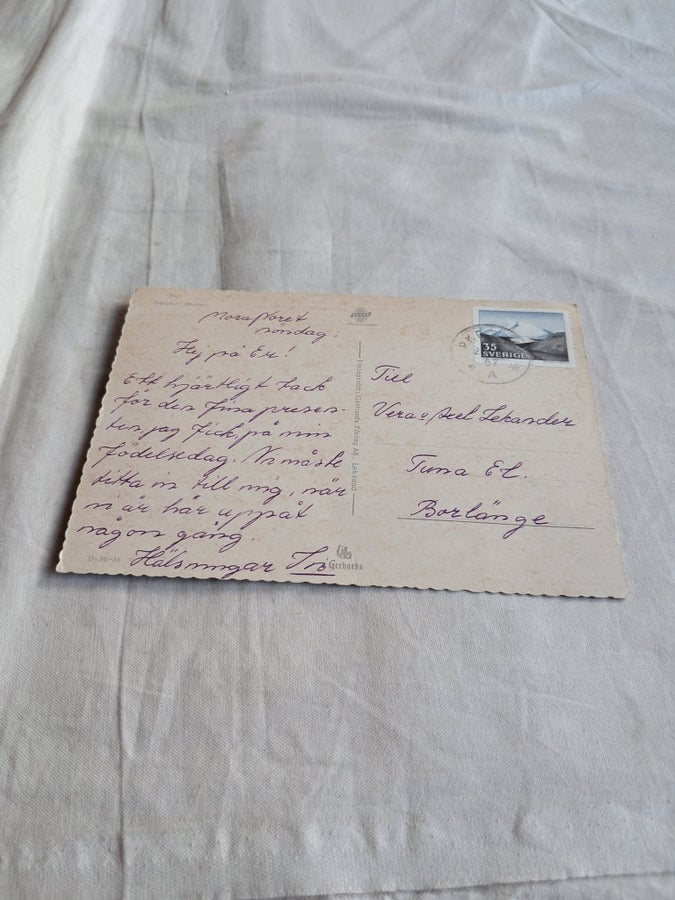 MoraNoret
söndag.
Hej på Er!
Ett hjärtligt tack
för den fina presen-
ten, jag fick, på min
födelsedag. Ni måste
titta in till mig, när
ni är här uppåt
någon gång.
Hälsningar
D-10-
Förlagsrätt: Gerhards Förlag AB, Leksand
Gerhards
35
SVERIGE
67
A
Till
Vera o Axel Lekander
Tuna El.
Borlänge